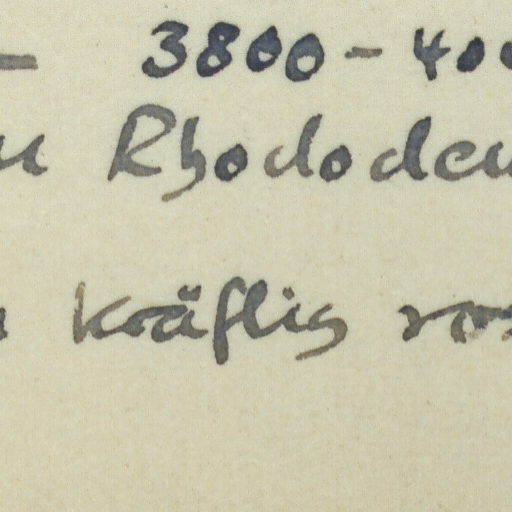 — 3800 - 400
u Rhododen
kräftig ros